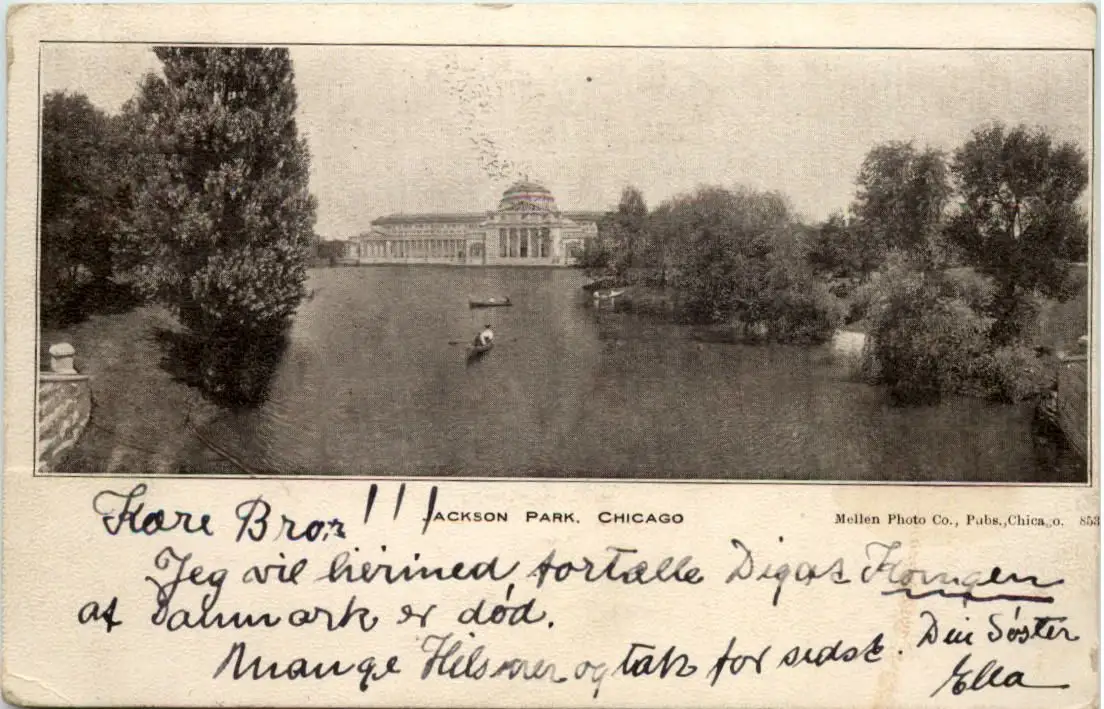 Jackson Park. Chicago
Mellen Photo Co., Pubs., Chicago. 853
Kære Bror!!!
Jeg vil hermed fortælle Dig at Kongen
af Danmark er död.
Mange Hilsner og tak for sidst. Din Söster
Ella